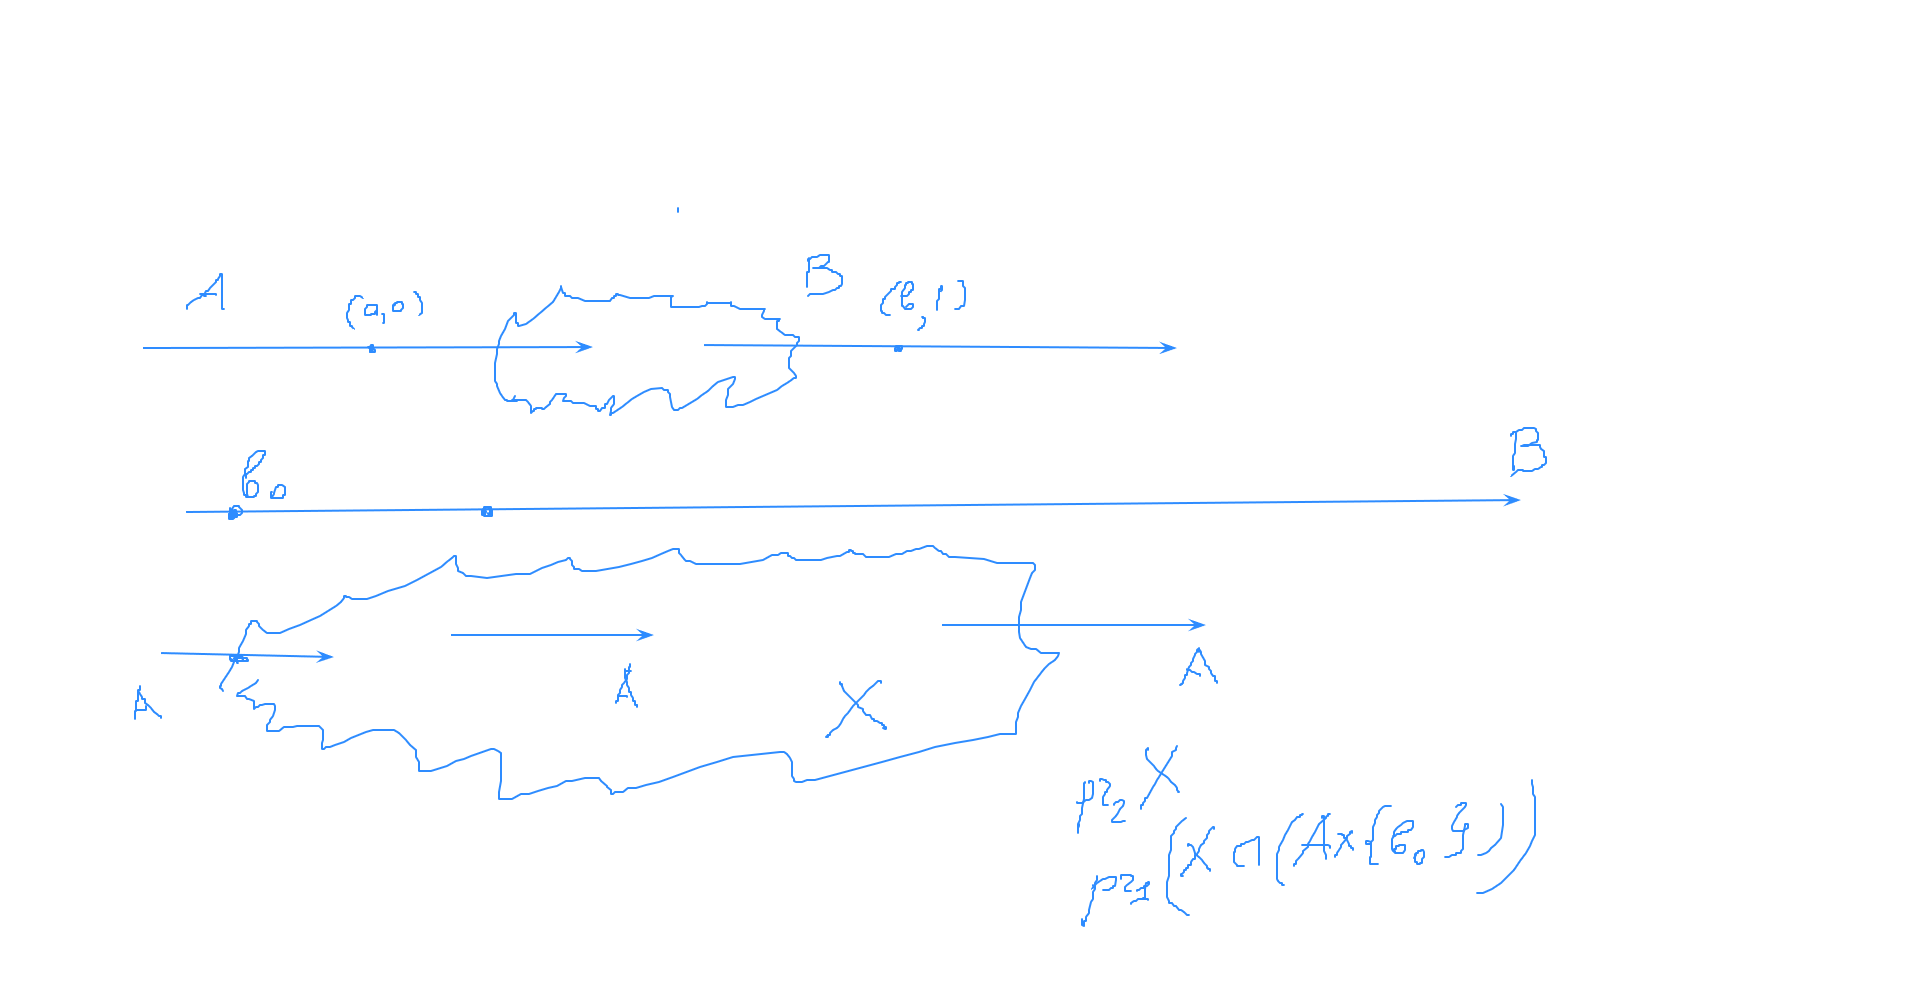 A (a,0) B (b,1)
b₀ B
A A X A
pr₂ X
pr₁(X ∩ (A×{b₀}))